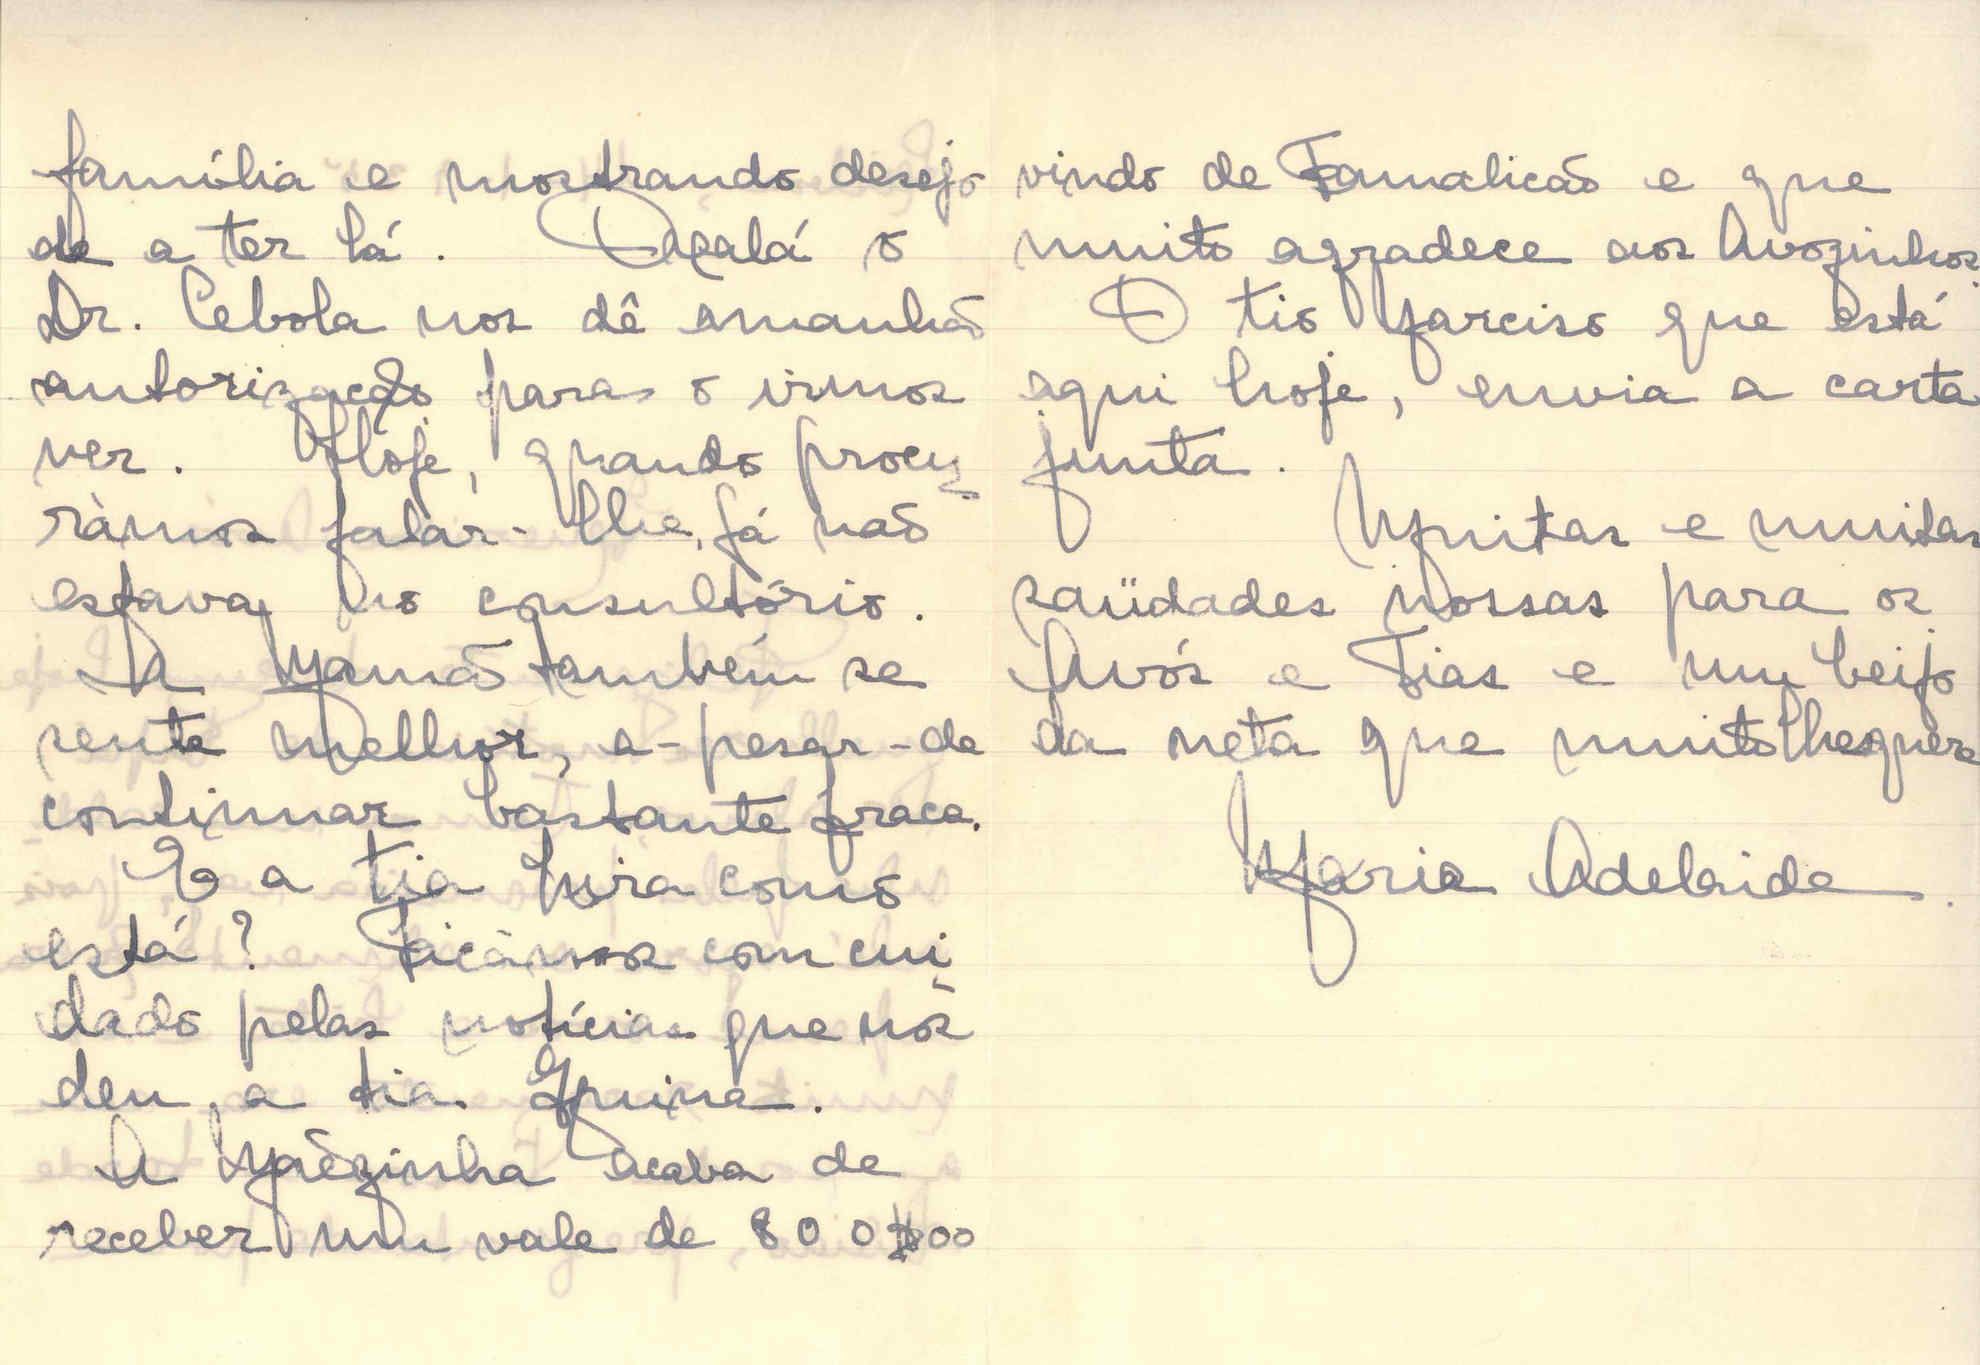 família e mostrando desejo
de a ter lá. Oxalá o
Dr. Cebola nos dê amanhã
autorização para o irmos
ver. Hoje, quando procu-
ràmos falar-lhe, já não
estava no consultório.
A Mamã também se
sente melhor, a-pesar-de
continuar bastante fraca.
E a tia Lura como
está? Ficámos com cui-
dado pelas notícias que nos
deu a tia
A Mãezinha acaba de
receber um vale de 800$00
vindo de Famalicão e que
muito agradece aos Avozinhos.
O tio Narciso que está
aqui hoje, envia a carta
junta.
Muitas e muitas
saüdades nossas para os
Avós e Tias e um beijo
da neta que muito lhes quere
Maria Adelaide.